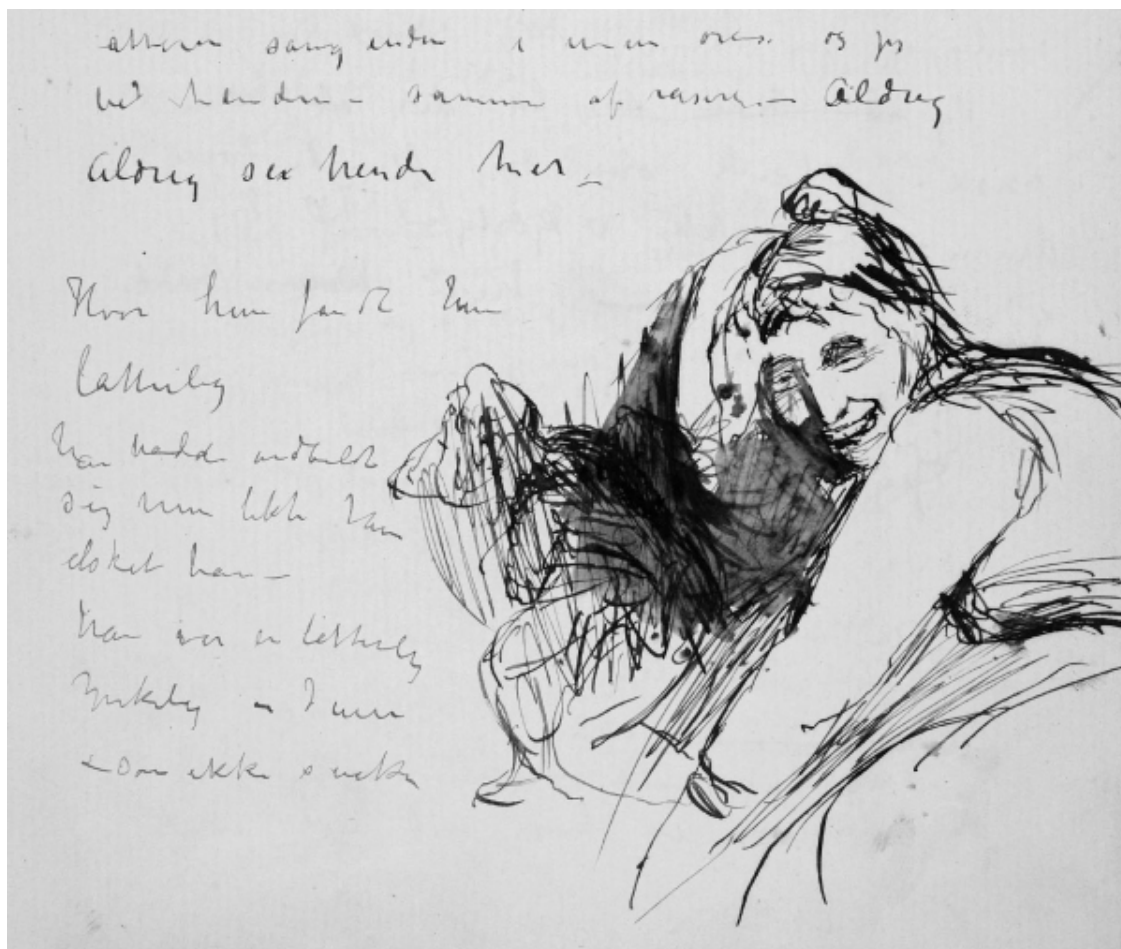 latteren sang enda i mine øren og jeg
vred hænderne sammen af raseri – Aldrig
Aldrig se hende mer –
Hvor hun fandt ham
latterlig
han hadde indbildt
sig hun likte ham
elsket ham –
han var en latterlig
ynkelig
som ikke